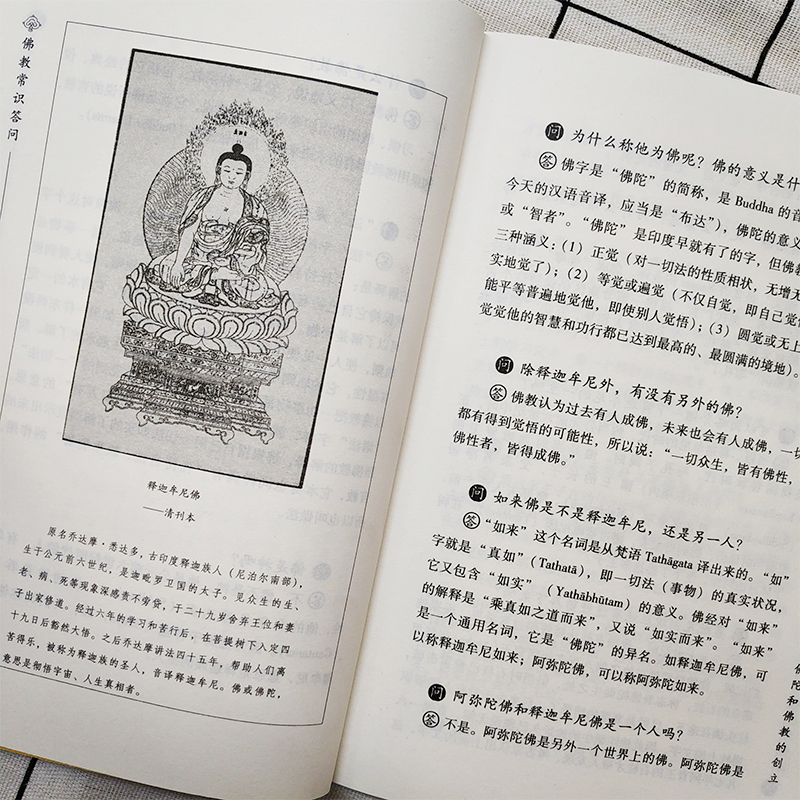 佛教常识答问
释迦牟尼佛
——清刊本
原名乔达摩·悉达多，古印度释迦族人（尼泊尔南部），
生于公元前六世纪，是迦毗罗卫国的太子。见众生的生、
老、病、死等现象深感责不劳贷，于二十九岁舍弃王位和妻
子出家修道。经过六年的学习和苦行后，在菩提树下入定四
十九日后豁然大悟。之后乔达摩讲法四十五年，帮助人们离
苦得乐，被称为释迦族的圣人，音译释迦牟尼。佛或佛陀，
意思是彻悟宇宙、人生真相者。
问 为什么称他为佛呢？佛的意义是什
答 佛字是“佛陀”的简称，是Buddha的音
今天的汉语音译，应当是“布达”），佛陀的意义
或“智者”。“佛陀”是印度早就有了的字，但佛教
三种涵义：（1）正觉（对一切法的性质相状，无增无
实地觉了）；（2）等觉或遍觉（不仅自觉，即自己觉
能平等普遍地觉他，即使别人觉悟）；（3）圆觉或无上
觉觉他的智慧和功行都已达到最高的、最圆满的境地）。
问 除释迦牟尼外，有没有另外的佛？
答 佛教认为过去有人成佛，未来也会有人成佛，一切
都有得到觉悟的可能性，所以说：“一切众生，皆有佛性，
佛性者，皆得成佛。”
问 如来佛是不是释迦牟尼，还是另一人？
答 “如来”这个名词是从梵语 Tathāgata 译出来的。“如”
字就是“真如”（Tathatā），即一切法（事物）的真实状况，
它又包含“如实”（Yathābhūtam）的意义。佛经对“如来”
的解释是“乘真如之道而来”，又说“如实而来”。“如来”
是一个通用名词，它是“佛陀”的异名。如释迦牟尼佛，可
以称释迦牟尼如来；阿弥陀佛，可以称阿弥陀如来。
问 阿弥陀佛和释迦牟尼佛是一个人吗？
答 不是。阿弥陀佛是另外一个世界上的佛。阿弥陀佛是
佛陀和佛教的创立